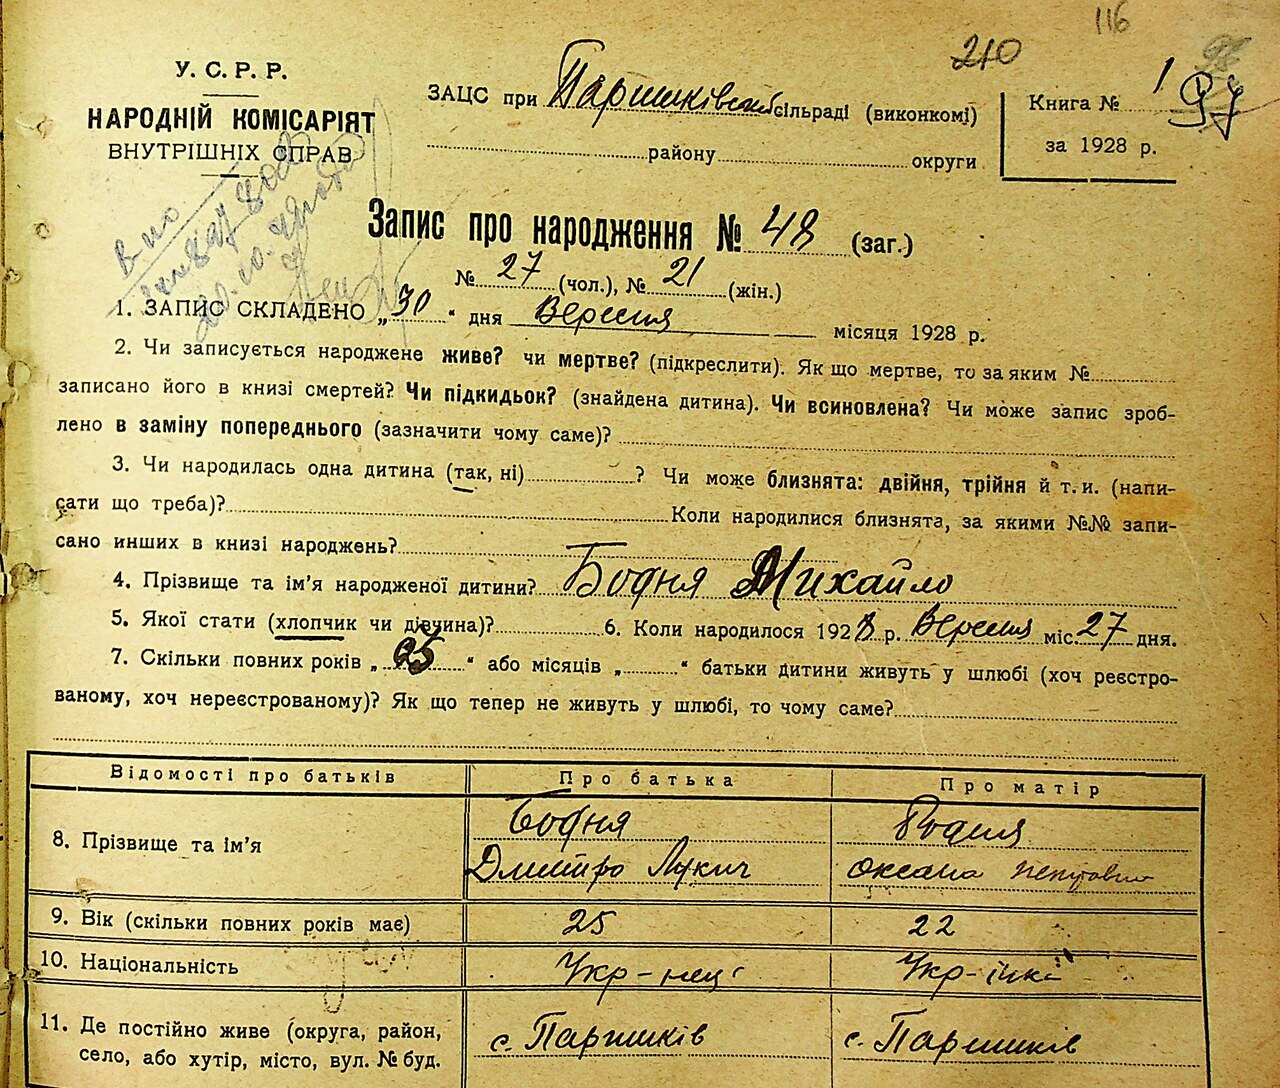 116
210
98
У. С. Р. Р.
НАРОДНІЙ КОМІСАРІЯТ
ВНУТРІШНІХ СПРАВ
ЗАЦС при Паришківській сільраді (виконкомі)
району округи
Книга № 1 97
за 1928 р.
Запис про народження № 48 (заг.)
№ 27 (чол.), № 21 (жін.)
1. ЗАПИС СКЛАДЕНО „30“ дня Вересня місяця 1928 р.
2. Чи записується народжене живе? чи мертве? (підкреслити). Як що мертве, то за яким №
записано його в книзі смертей? Чи підкидьок? (знайдена дитина). Чи всиновлена? Чи може запис зроб-
лено в заміну попереднього (зазначити чому саме)?
3. Чи народилась одна дитина (так, ні) ? Чи може близнята: двійня, трійня й т. и. (напи-
сати що треба)? Коли народилися близнята, за якими №№ запи-
сано инших в книзі народжень?
4. Прізвище та ім’я народженої дитини? Бодня Михайло
5. Якої стати (хлопчик чи дівчина)? 6. Коли народилося 1928 р. Вересня міс. 27 дня.
7. Скільки повних років „ “ або місяців „ “ батьки дитини живуть у шлюбі (хоч реєстро-
ваному, хоч нереєстрованому)? Як що тепер не живуть у шлюбі, то чому саме?
Відомості про батьків Про батька Про матір
8. Прізвище та ім’я Бодня Бодня
Дмитро Лукич Оксана
9. Вік (скільки повних років має) 25 22
10. Національність Укр-нець Укр-їнка
11. Де постійно живе (округа, район, с. Паришків с. Паришків
село, або хутір, місто, вул. № буд.